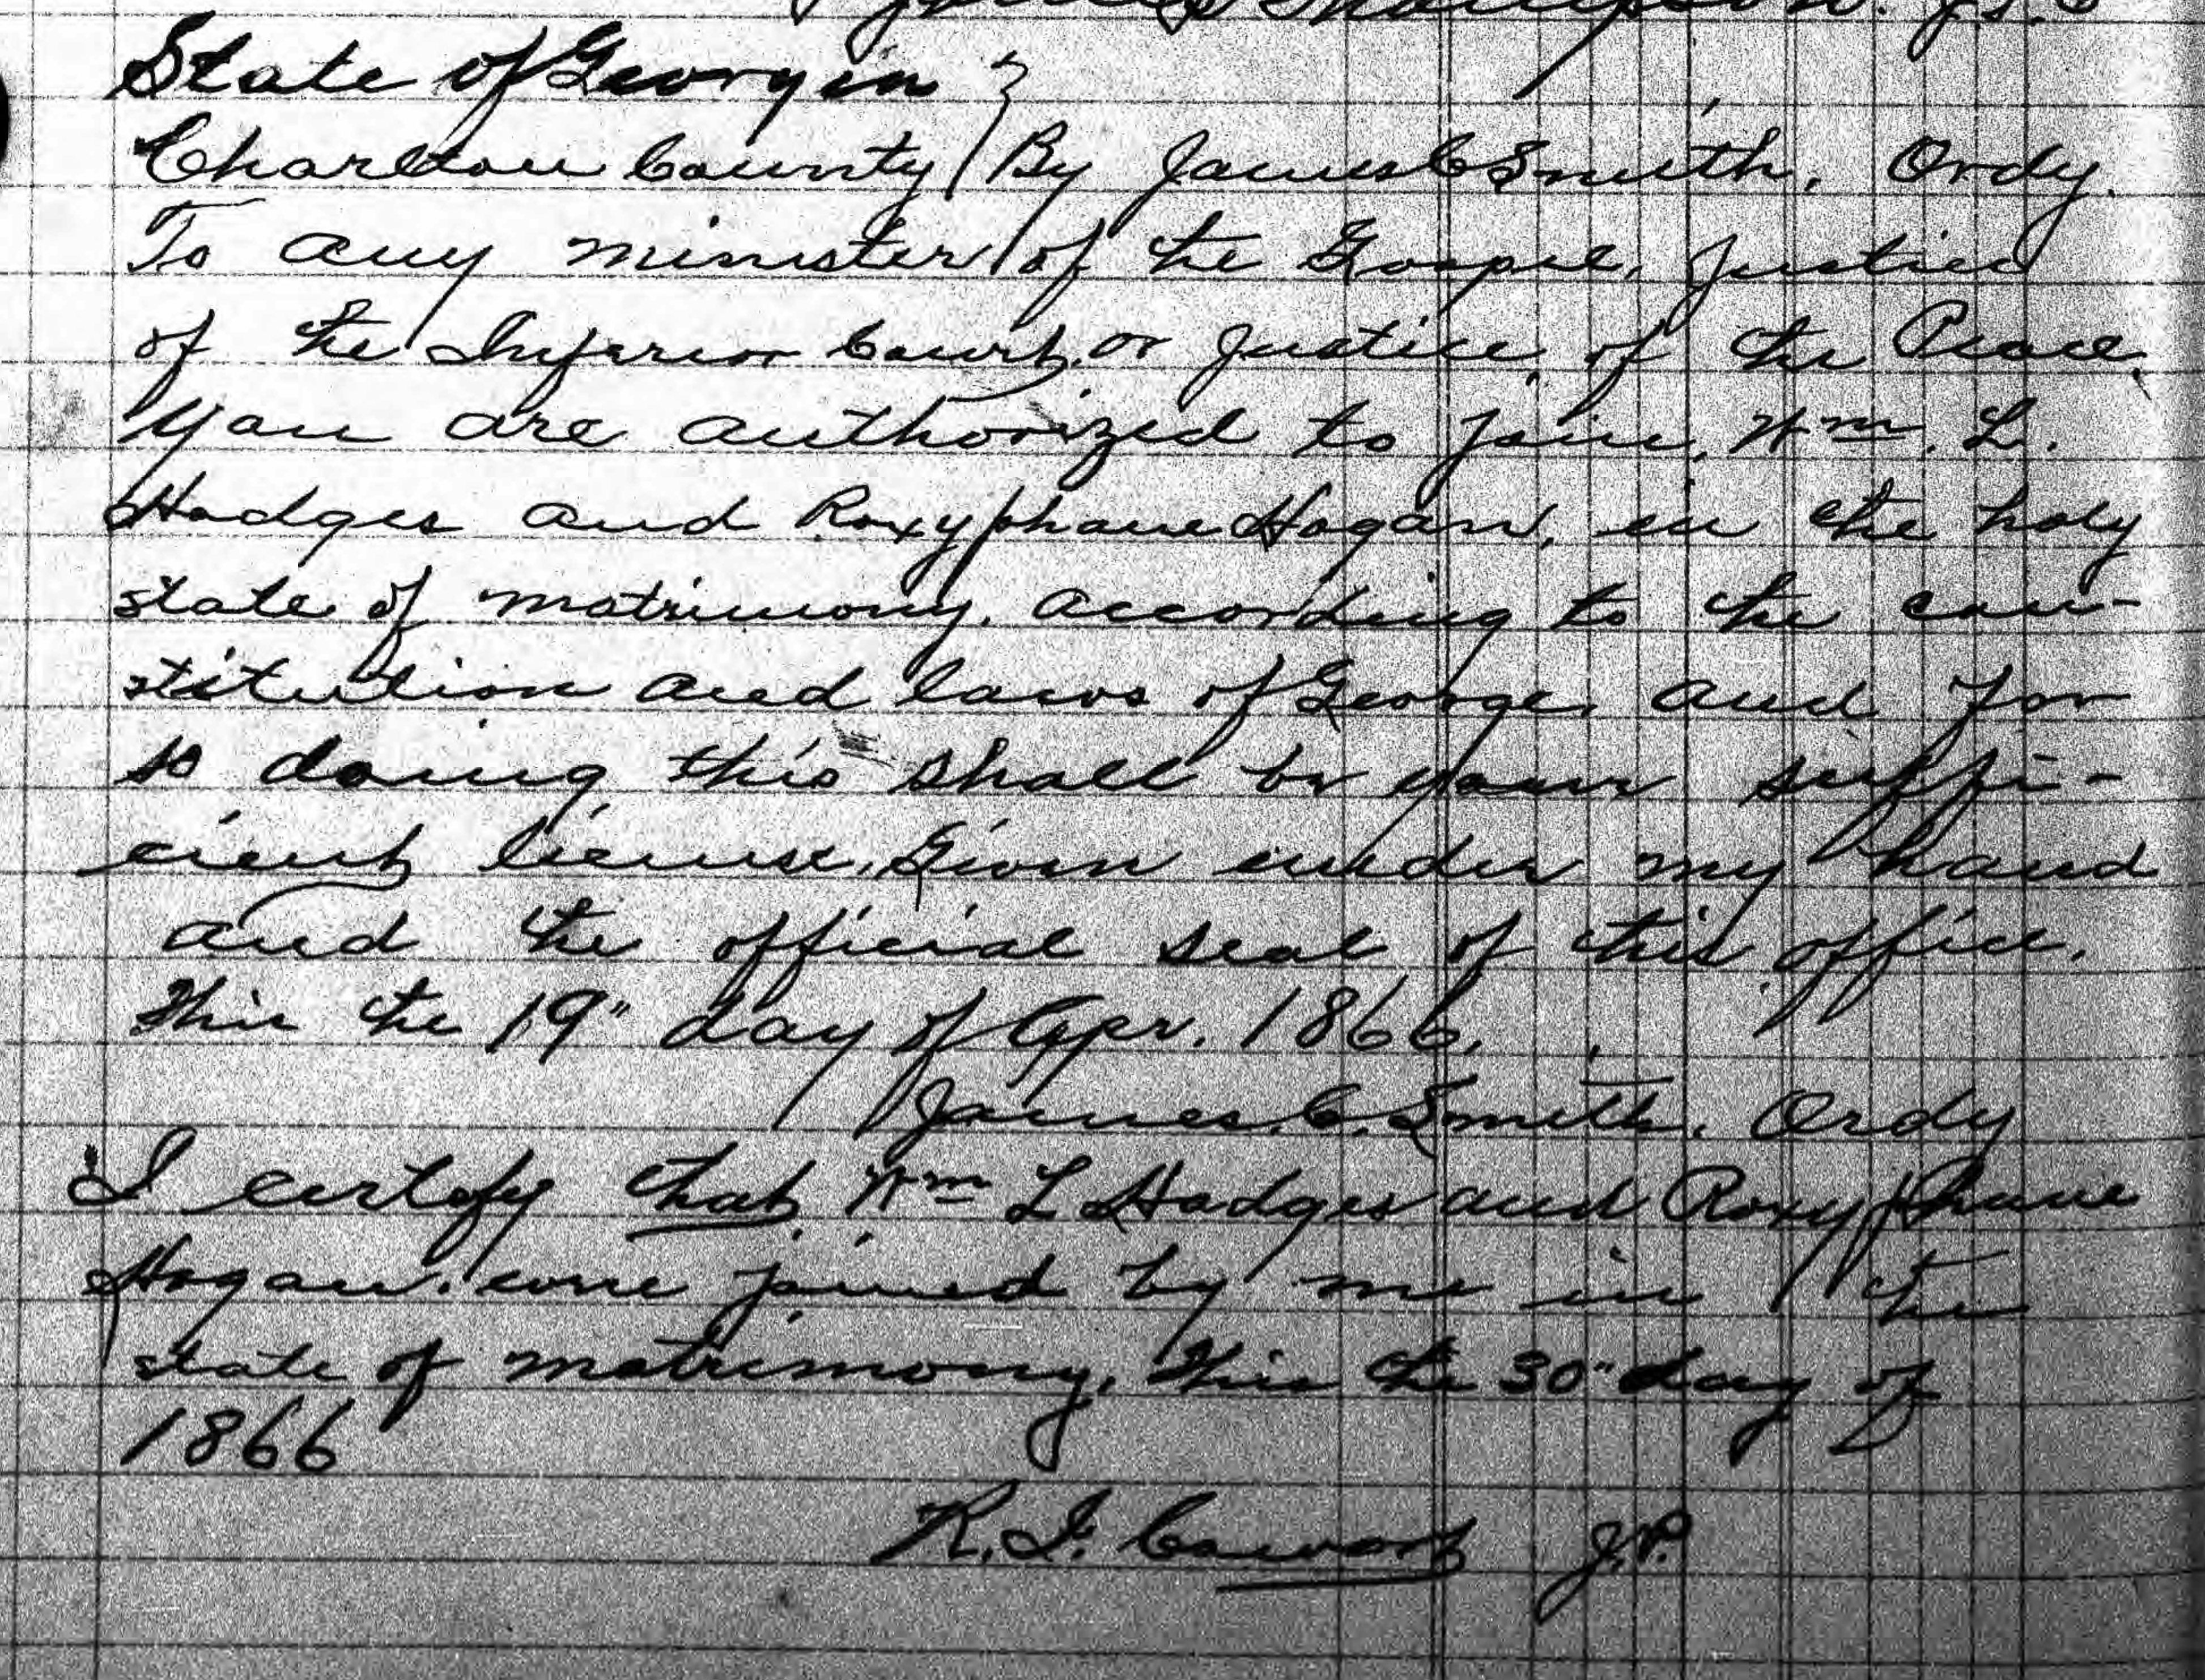 Thompson. J.P.
State of Georgia }
Charlton County } By James C Smith, Ordy.
To any minister of the Gospel, Justice
of the Inferior Court, or Justice of the Peace,
You are authorized to join, Wm. L.
Hodges and Roxyphane Hogan, in the holy
state of matrimony, according to the con-
stitution and laws of George, and for
so doing this shall be your suffi-
cient license, Given under my hand
and the official seal of this office.
This the 19" day of Apr. 1866,
James. C. Smith. Ordy
I certify that Wm L Hodges and Roxyphane
Hogan. were joined by me in the
state of matrimony, this the 30" day of
1866
R. J. J.P.